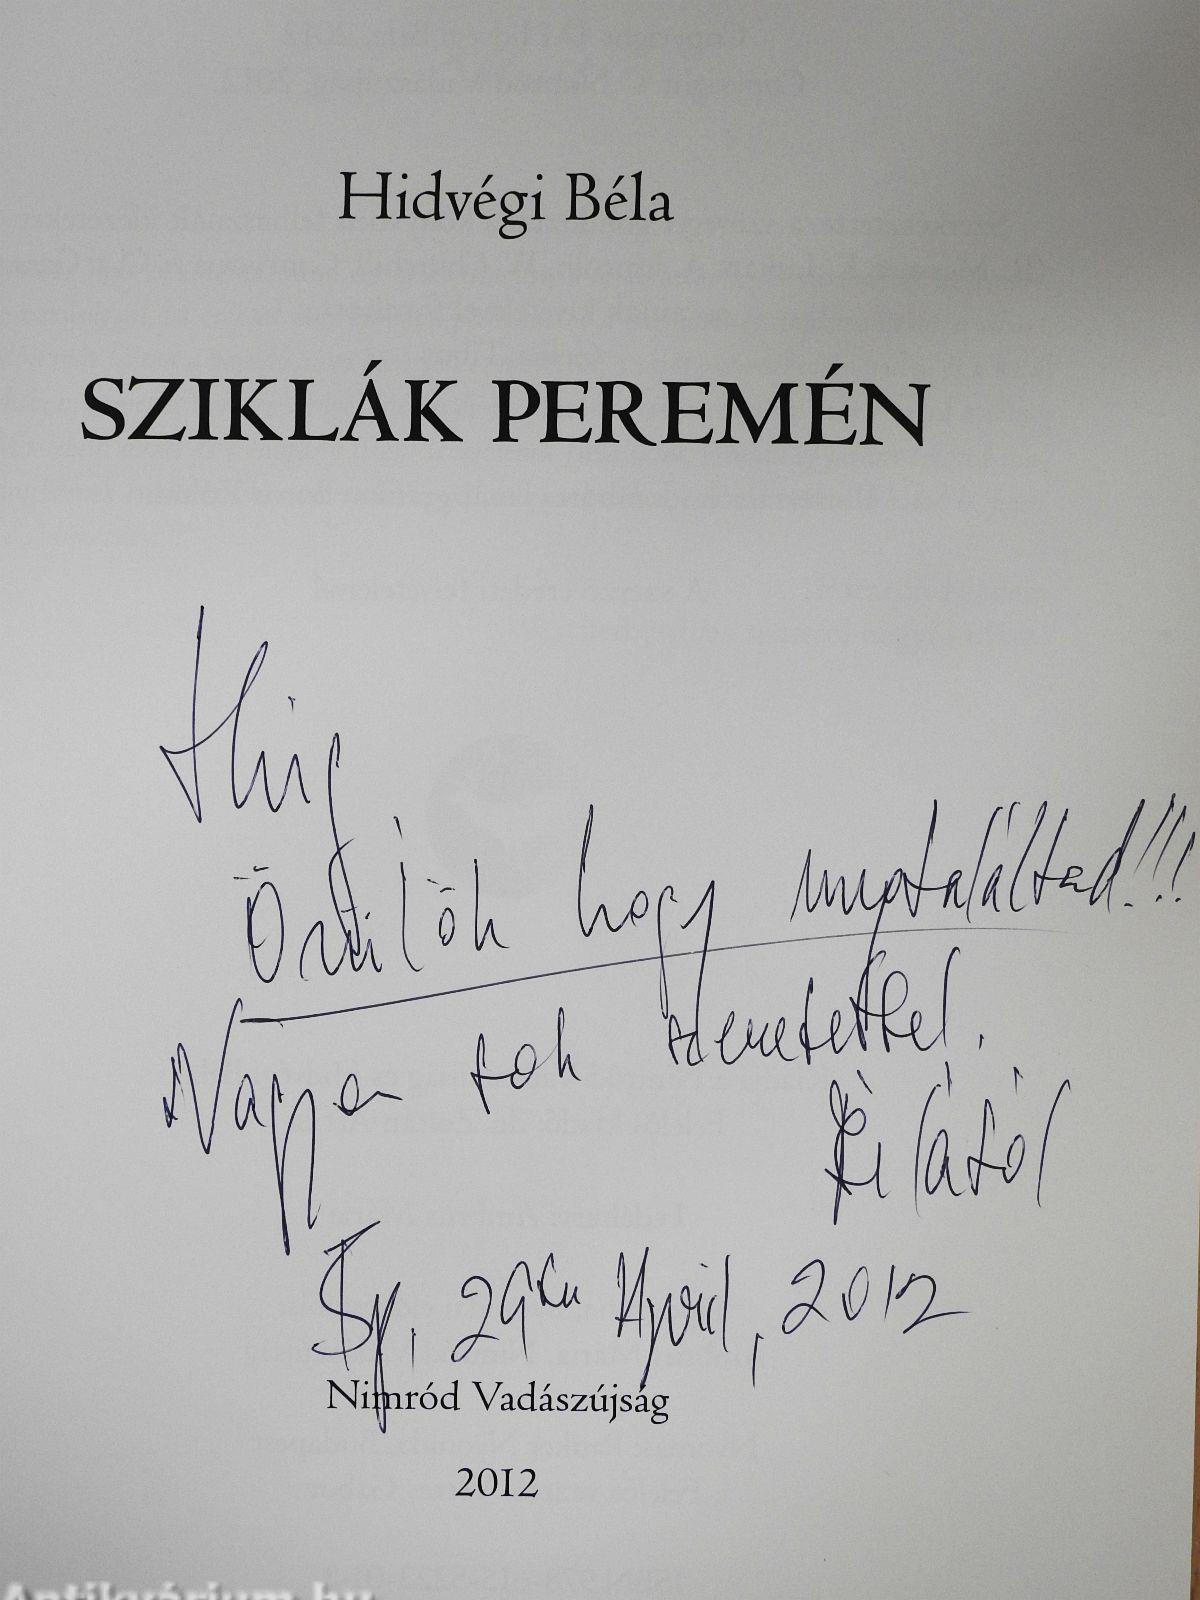 Hidvégi Béla
SZIKLÁK PEREMÉN
Örülök hogy megtaláltad!!!
Nagyon sok szeretettel.
Bélától
29 April, 2012
Nimród Vadászújság
2012
Antikvárium.hu